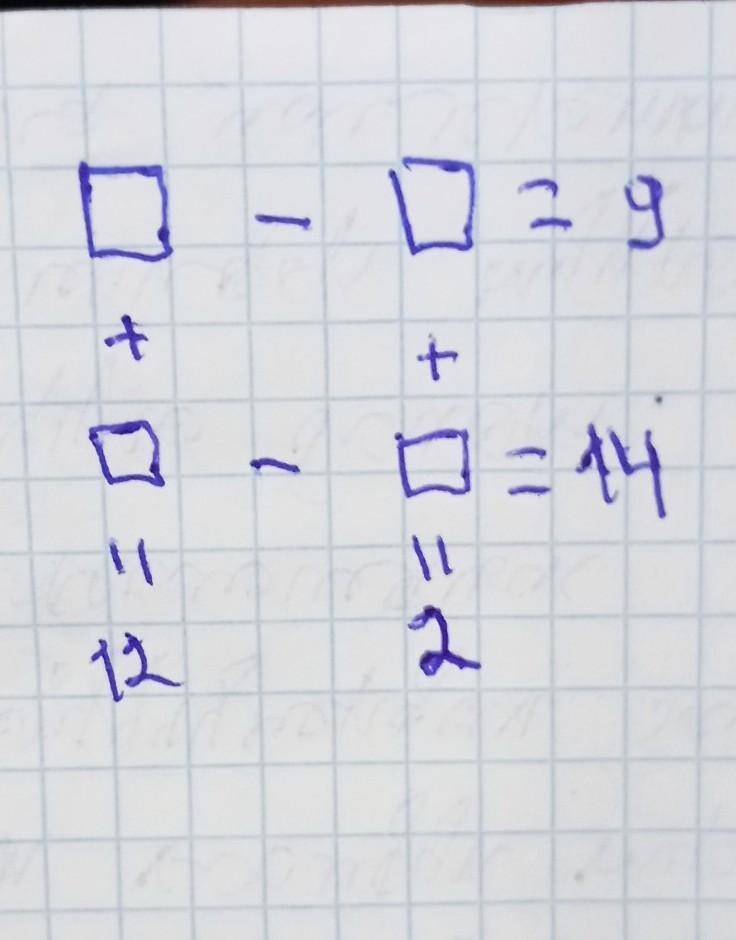 □ - □ = 9
+ +
□ - □ = 14
= =
12 2